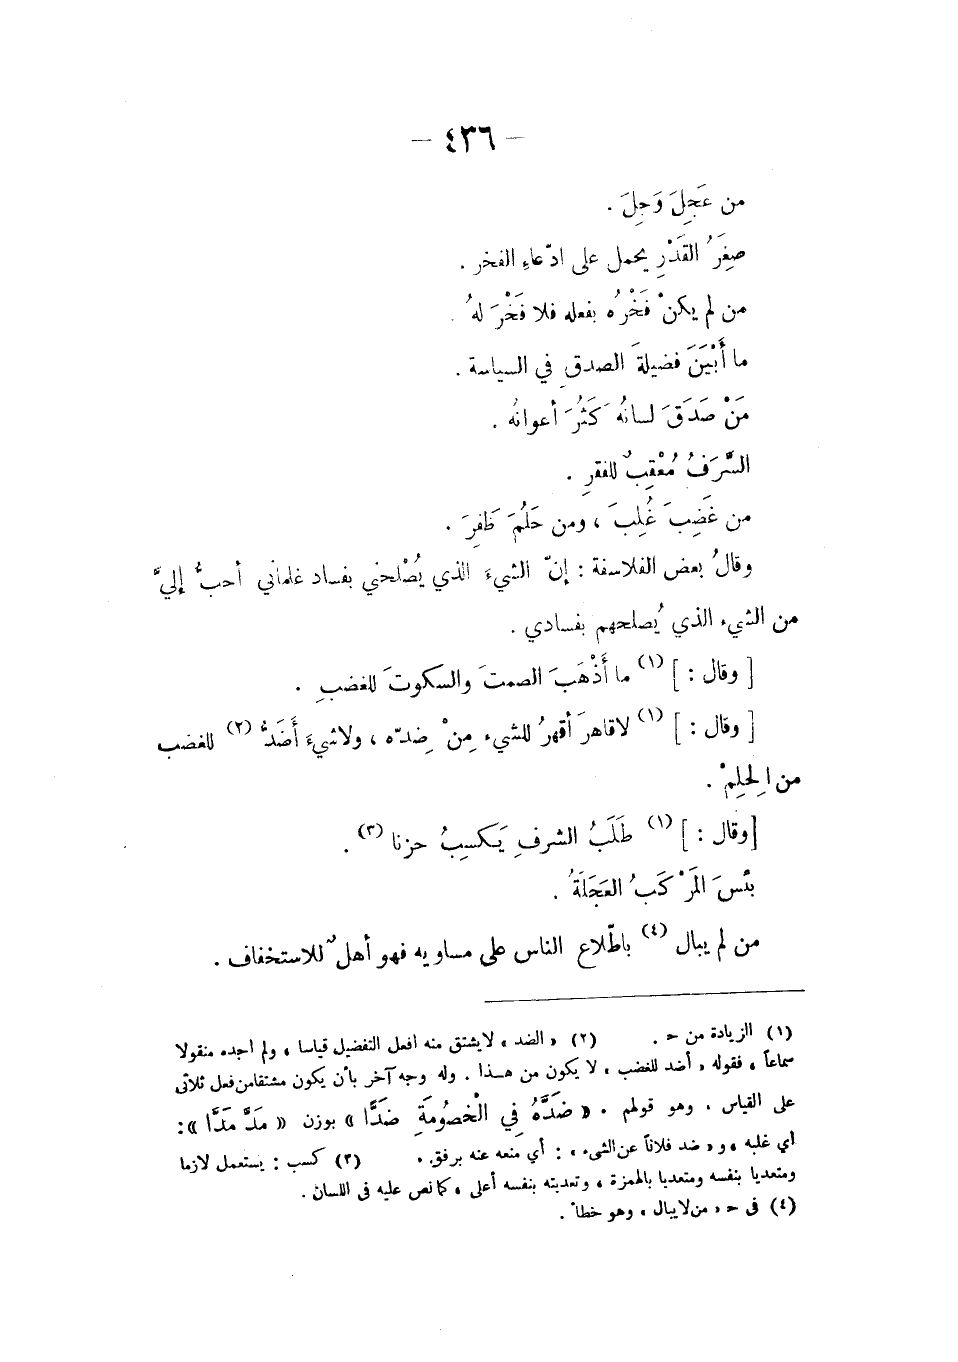 — ٤٣٦ —
من عَجِلَ وَجِلَ .
صِغَرُ القَدْرِ يحمل على ادّعاءِ الفخر .
من لم يكنْ فَخْرُه بفعله فلا فَخْرَ لهُ .
ما أَبْيَنَ فضيلةَ الصدقِ في السياسة .
مَنْ صَدَقَ لسانُه كَثُرَ أعوانُه .
السَّرَفُ مُعْقِبٌ للفقرِ .
من غَضِبَ غُلِبَ ، ومن حَلُمَ ظَفِرَ .
وقالُ بعض الفلاسفة : إنّ الشيءَ الذي يُصْلحني بفساد غلماني أحبُّ إليَّ
من الشيء الذي يُصلحهم بفسادي .
[ وقال : ] (١) ما أَذْهَبَ الصمتَ والسكوتَ للغضبِ .
[ وقال : ] (١) لاقاهرَ أقهرُ للشيء مِنْ ضِدّه ، ولاشيءَ أَضَدُّ (٢) للغضب
من الحِلِمْ .
[وقال : ] (١) طَلَبُ الشرفِ يَكسِبُ حزنا (٣) .
بئسَ المَرْكَبُ العَجَلَةُ .
من لم يبال (٤) باطّلاع الناس على مساويه فهو أهلٌ للاستخفاف .
(١) الزيادة من ح . (٢) « الضد » لايشتق منه افعل التفضيل قياسا ، ولم اجده منقولا
سماعاً ، فقوله « أضد للغضب » لا يكون من هـذا . وله وجه آخر بأن يكون مشتقامن فعل ثلاثى
على القياس ، وهو قولهم . « ضَدَّهُ فِي الْخصُومَةِ ضَدًّا » بوزن « مَدَّ مَدًّا » :
أي غلبه ، و « ضد فلاناً عن الشىء » : أي منعه عنه برفق . (٣) كسب : يستعمل لازما
ومتعديا بنفسه ومتعديا بالهمزة ، وتعديته بنفسه أعلى ، كما نص عليه فى اللسان .
(٤) فى ح « من لايبال » وهو خطأ .